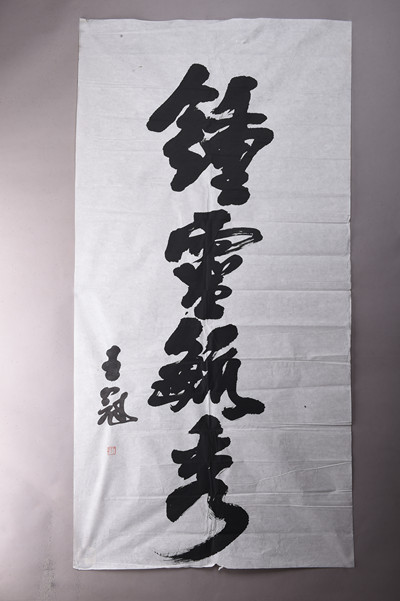 鍾靈毓秀
王冠